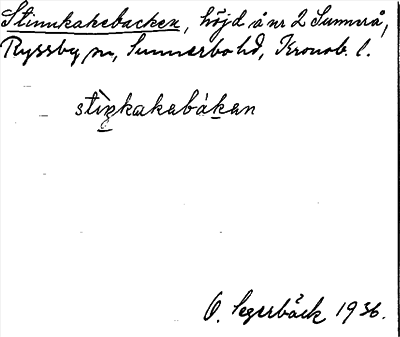 Stinnkakebacken, höjd å nr 2 Sunnerå,
Ryssby sn, Sunnerbo hd, Kronob. l.
stìn̲kakabák̲an
O. Segerbäck 1936.